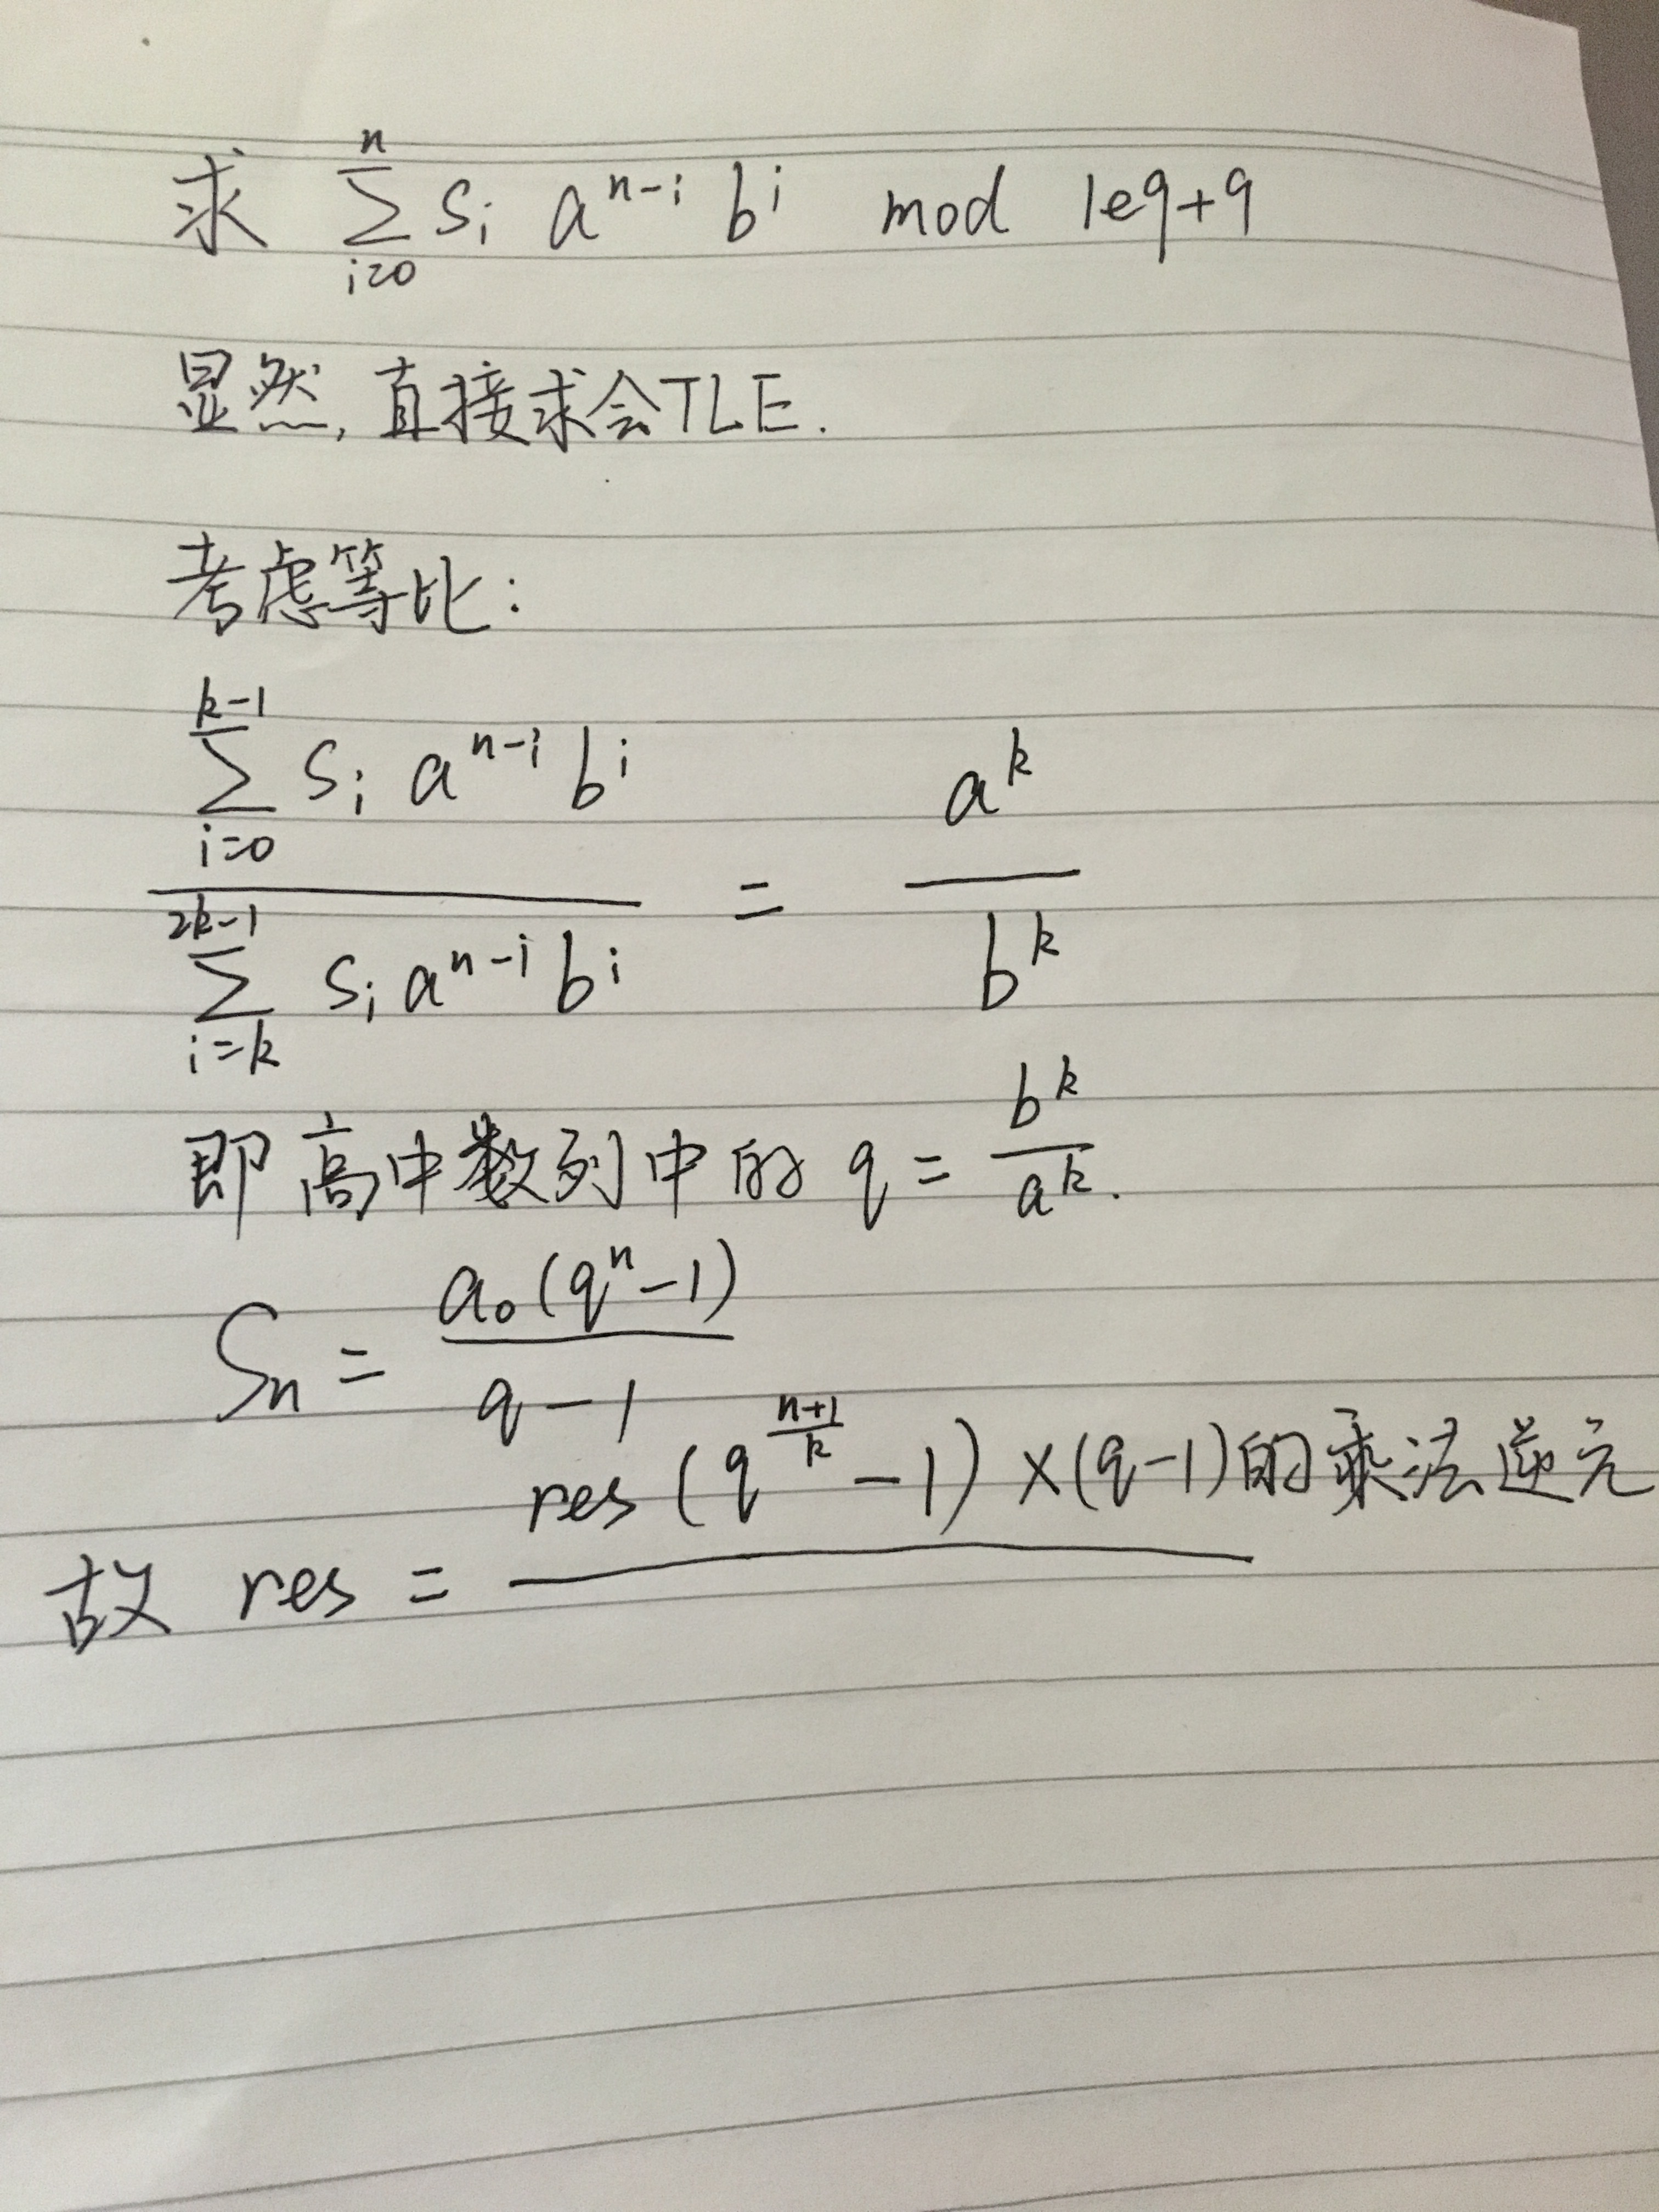 求 $\sum_{i=0}^{n} s_i a^{n-i} b^i$ mod 1e9+9
显然, 直接求会TLE.
考虑等比:
$\frac{\sum_{i=0}^{k-1} s_i a^{n-i} b^i}{\sum_{i=k}^{2k-1} s_i a^{n-i} b^i} = \frac{a^k}{b^k}$
即高中数列中的 $q = \frac{b^k}{a^k}$.
$S_n = \frac{a_0(q^n-1)}{q-1}$
故 res = $\frac{res(q^{\frac{n+1}{k}}-1) \times (q-1)的乘法逆元}{}$